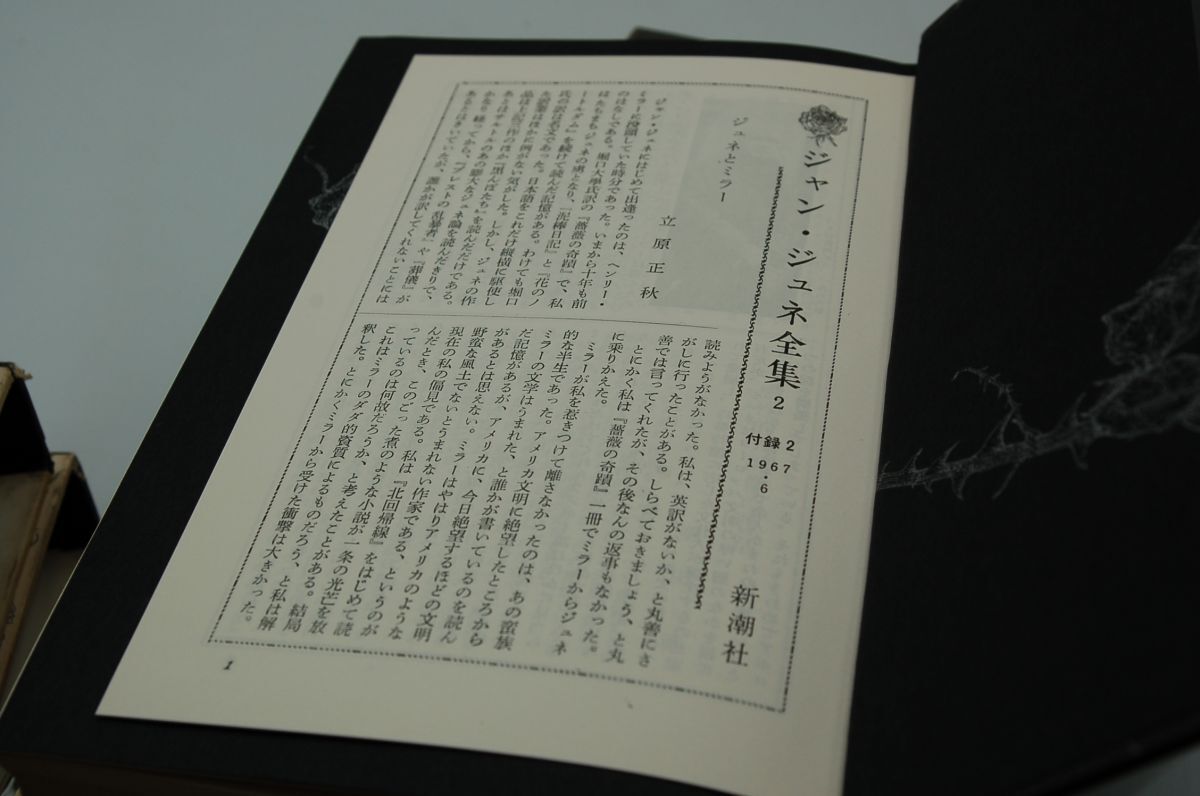 ジャン・ジュネ全集 2
付録2
1967・6
新潮社
ジュネとミラー
立原正秋
ジャン・ジュネにはじめて出逢ったのは、ヘンリー・
ミラーに没頭していた時分であった。いまから十年も前
のはなしである。堀口大學氏訳の『薔薇の奇蹟』で、私
はたちまちジュネの虜となり、『泥棒日記』と『花のノ
ートルダム』を続けて読んだ記憶がある。わけても堀口
氏の訳は名文であった。日本語をこれだけ縦横に駆使し
た訳業はほかに例がない気がした。しかし、ジュネの作
品は上記三作のほか『黒んぼたち』を読んだだけである。
あとはサルトルのあの膨大なジュネ論を読んだきりで、
かなり経ってから、『ブレストの乱暴者』や『葬儀』が
あるとはきいていたが、誰かが訳してくれないことには
読みようがなかった。私は、英訳がないか、と丸善にさ
がしに行ったことがある。しらべておきましょう、と丸
善では言ってくれたが、その後なんの返事もなかった。
とにかく私は『薔薇の奇蹟』一冊でミラーからジュネ
に乗りかえた。
ミラーが私を惹きつけて離さなかったのは、あの蛮族
的な半生であった。アメリカ文明に絶望したところから
ミラーの文学はうまれた、と誰かが書いているのを読ん
だ記憶があるが、アメリカに、今日絶望するほどの文明
があるとは思えない。ミラーはやはりアメリカのような
野蛮な風土でないとうまれない作家である、というのが
現在の私の偏見である。私は『北回帰線』をはじめて読
んだとき、このごった煮のような小説が一条の光芒を放
っているのは何故だろうか、と考えたことがある。結局
これはミラーのダダ的資質によるものだろう、と私は解
釈した。とにかくミラーから受けた衝撃は大きかった。
1